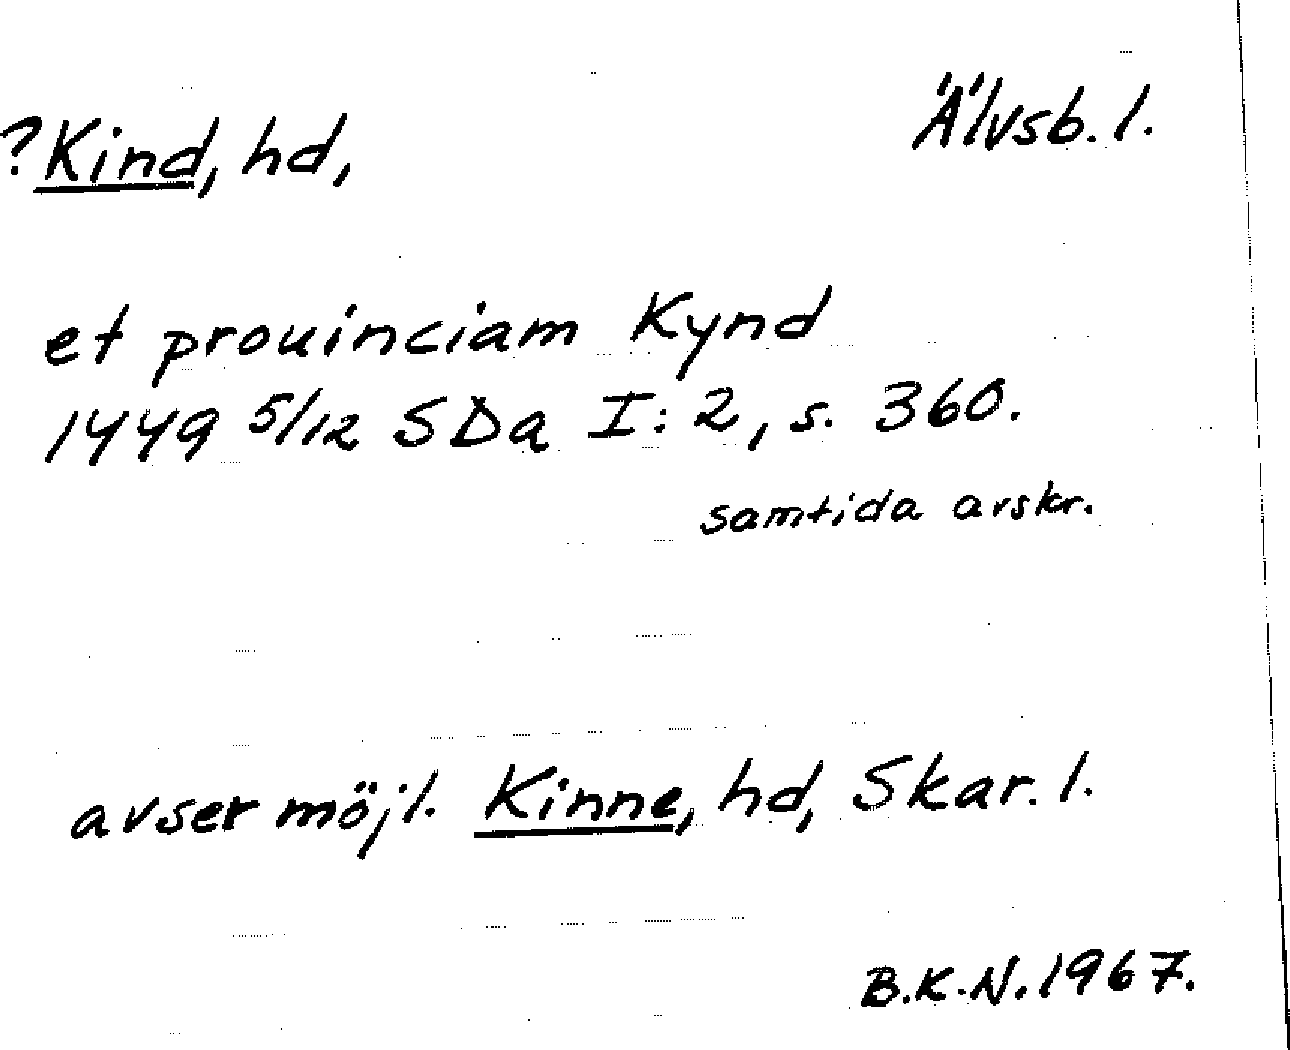 ?Kind, hd, Älvsb. l.
et prouinciam Kynd
1449 5/12 SDa I: 2, s. 360.
samtida avskr.
avser möjl. Kinne, hd, Skar. l.
B.K.N. 1967.